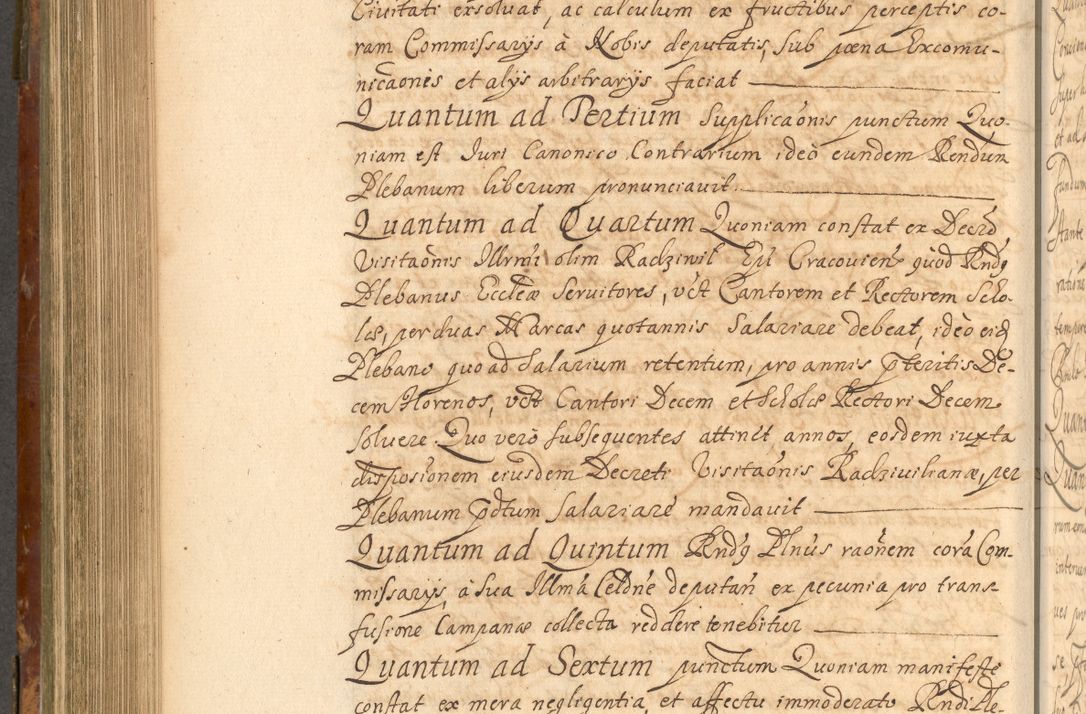 Civitati exsolvat, ac calculum ex fructibus perceptis co-
ram Commissarijs à Nobis deputatis, sub pæna Excomu-
nicaōnis et alijs arbitrarijs faciat
Quantum ad Tertium Supplicaōnis punctum Quo-
niam est Juri Canonico Contrarium ideò eundem Rendum
Plebanum liberum pronunciavit.
Quantum ad Quartum Quoniam constat ex Decrō
Visitaōnis Illrmi olim Radziwil Epi Cracovien quòd Rndg
Plebanus Eccleæ servitores, vēt Cantorem et Rectorem Scho-
læ, per duas Marcas quotannis Salariare debeat, ideò eidē
Plebano quoad Salarium retentum, pro annis p̄teritis De-
cem florenos, vēt Cantori Decem et Scholæ Rectori Decem
solvere. Quo verò subsequentes attinēt annos, eosdem iuxta
disposiōnem eiusdem Decreti Visitaōnis Radziviliana, per
Plebanum p̄dtum Salariare mandavit
Quantum ad Quintum Rndg Plnus raōnem corā Com-
missarijs, à Sua Illmā Celdne deputan ex pecunia pro trans-
fusione Campanæ collecta reddere tenebitur
Quantum ad Sextum punctum Quoniam manifeste
constat ex mera negligentia, et affectu immoderato Rndi Ple-